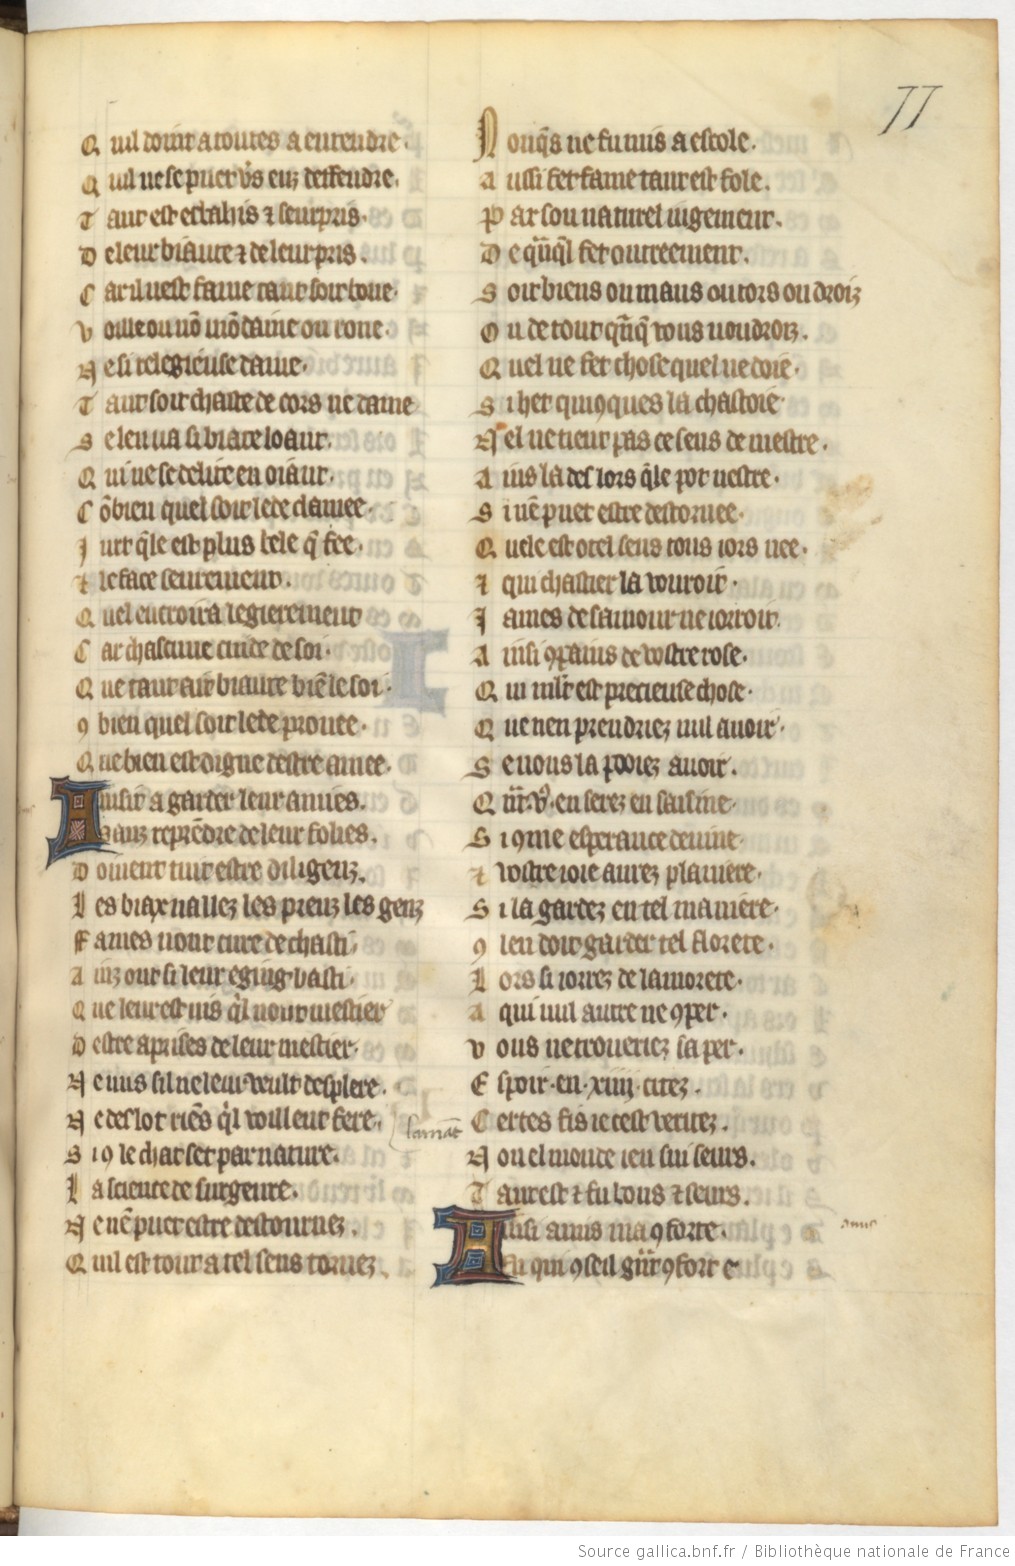 77
Q uil doint a toutes a entendre.
Q uil ne se puet v̾s euz deffendre.
T ant est esbahis ⁊ seurpris.
D e leur biaute ⁊ de leur pris.
C ar il nest fame tant soit bone.
V oille ou nõ mõdaine ou none.
N e si religieuse dame.
T ant soit chaste de cors ne dame
S e len ua sa biaute loant.
Q ui ne se delite en oiãnt.
C õbien quel soit lede clamee.
J urt q̃le est plus bele q̃ fee.
⁊ le face seurement.
Q uel en croira legierement
C ar chascune cuide de soi.
Q ue tant ait biaute biẽ le soi.
ꝯ bien quel soit lede prouee.
Q ue bien est digne destre amee.
A insit a garder leur amies.
S anz reprẽdre de leur folies.
D oiuent tuit estre diligenz.
L es biax uallez les preuz les genz
F ames nont cure de chasti.
A inz ont si leur eging basti.
Q ue leur est uis q̃l nont mestier
D estre aprises de leur mestier.
N e nus sil ne leur veult desplere.
N e deslot riẽs q̃l voillent fere.
S i ꝯ le chat set par nature.
L a science de surgeure.
N e nẽ puet estre destournez.
Q uil est tout a tel sens tornez.
lamãt
N onq̃s ne fu mis a escole.
A ussi fet fame tant est fole.
P ar son naturel iugement.
D e q̃nq̃l fet outreement.
S oit biens ou maus ou tors ou droiz
O u de tout q̃nq̃ vous uoudroiz.
Q uel ne fet chose quel ne doie.
S i het quiꝯques la chastoie
N el ne tient pas ce sens de mestre.
A ins la des lors q̃le pot nestre.
S i nẽ puet estre destornee.
Q uele est o tel sens tous iors nee.
⁊ qui chastier la vouroit.
J ames de samour ne iorroit.
A insi ꝯpains de vostre rose.
Q ui mlt̃ est precieuse chose.
Q ue nen prendriez nul auoir.
S e uous la pooiez auoir.
Q ñt v̾. en serez en saisine.
S i ꝯme esperance deuine.
⁊ vostre ioie aurez planiere.
S i la gardez en tel maniere.
ꝯ len doit garder tel florete.
L ors si iorrez de lamorete.
A qui nul autre ne ꝯper.
V ous ne troueriez sa per.
E spoir .en .xiiij. citez.
C ertes fis ie cest veritez.
N ou el monde ien sui seurs.
T ant est ⁊ fu bons ⁊ seurs.
A insi amis ma ꝯforte.
E n qui ꝯseil gñt ꝯfort e
amis
Source gallica.bnf.fr / Bibliothèque nationale de France